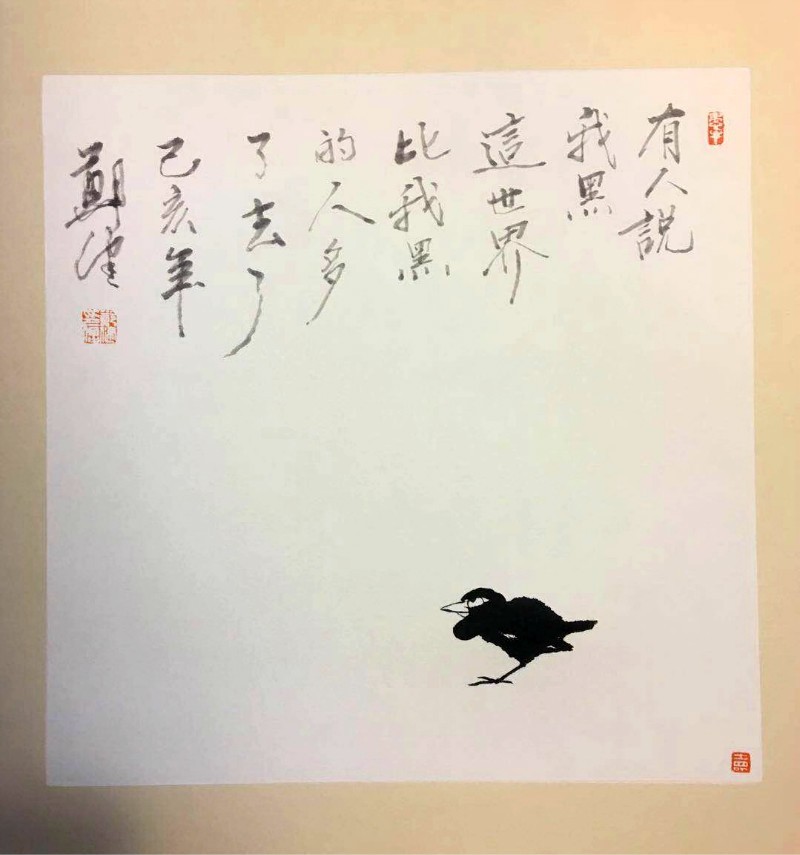 有人説
我黑
這世界
比我黑
的人多
了去了
己亥年